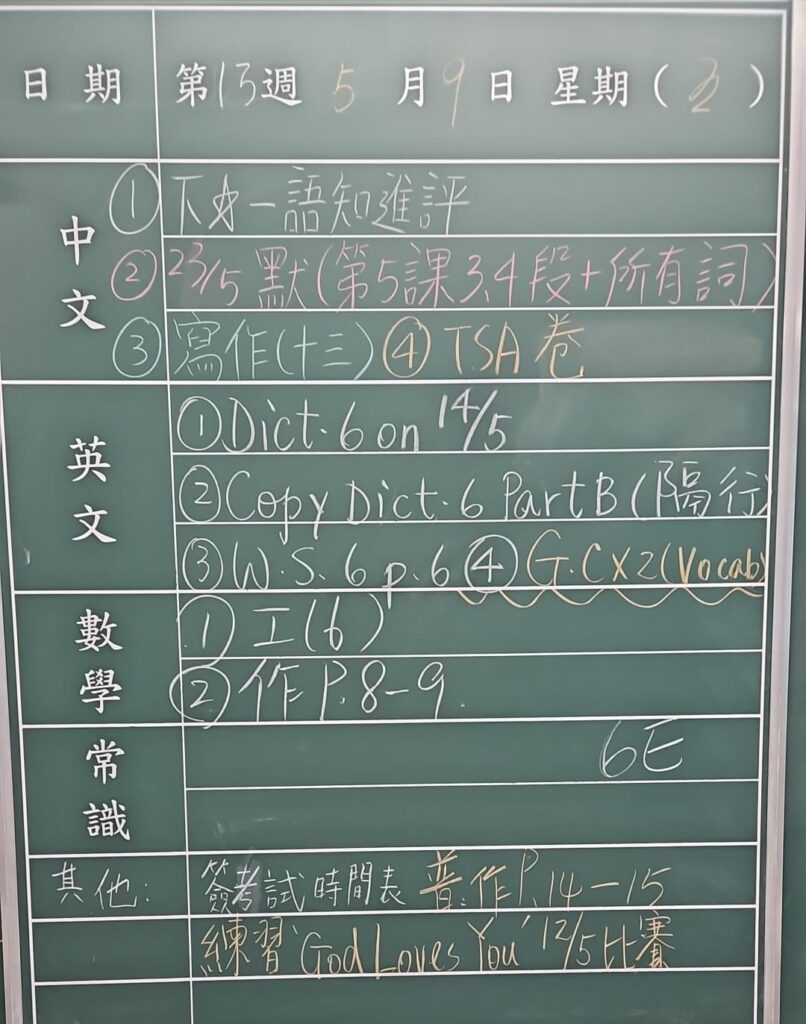 日期 第13週 5月9日 星期(五)
中文
① 下一語知進評
② 23/5 默(第5課3.4段+所有詞)
③ 寫作(十三) ④ TSA 卷
英文
① Dict. 6 on 14/5
② Copy Dict. 6 Part B (隔行)
③ W.S. 6 p. 6 ④ G.C X 2 (Vocab)
數學
① 工(6)
② 作 P. 8-9.
常識
6E
其他: 簽考試時間表 普:作P.14-15
練習 'God Loves You' 12/5 比賽